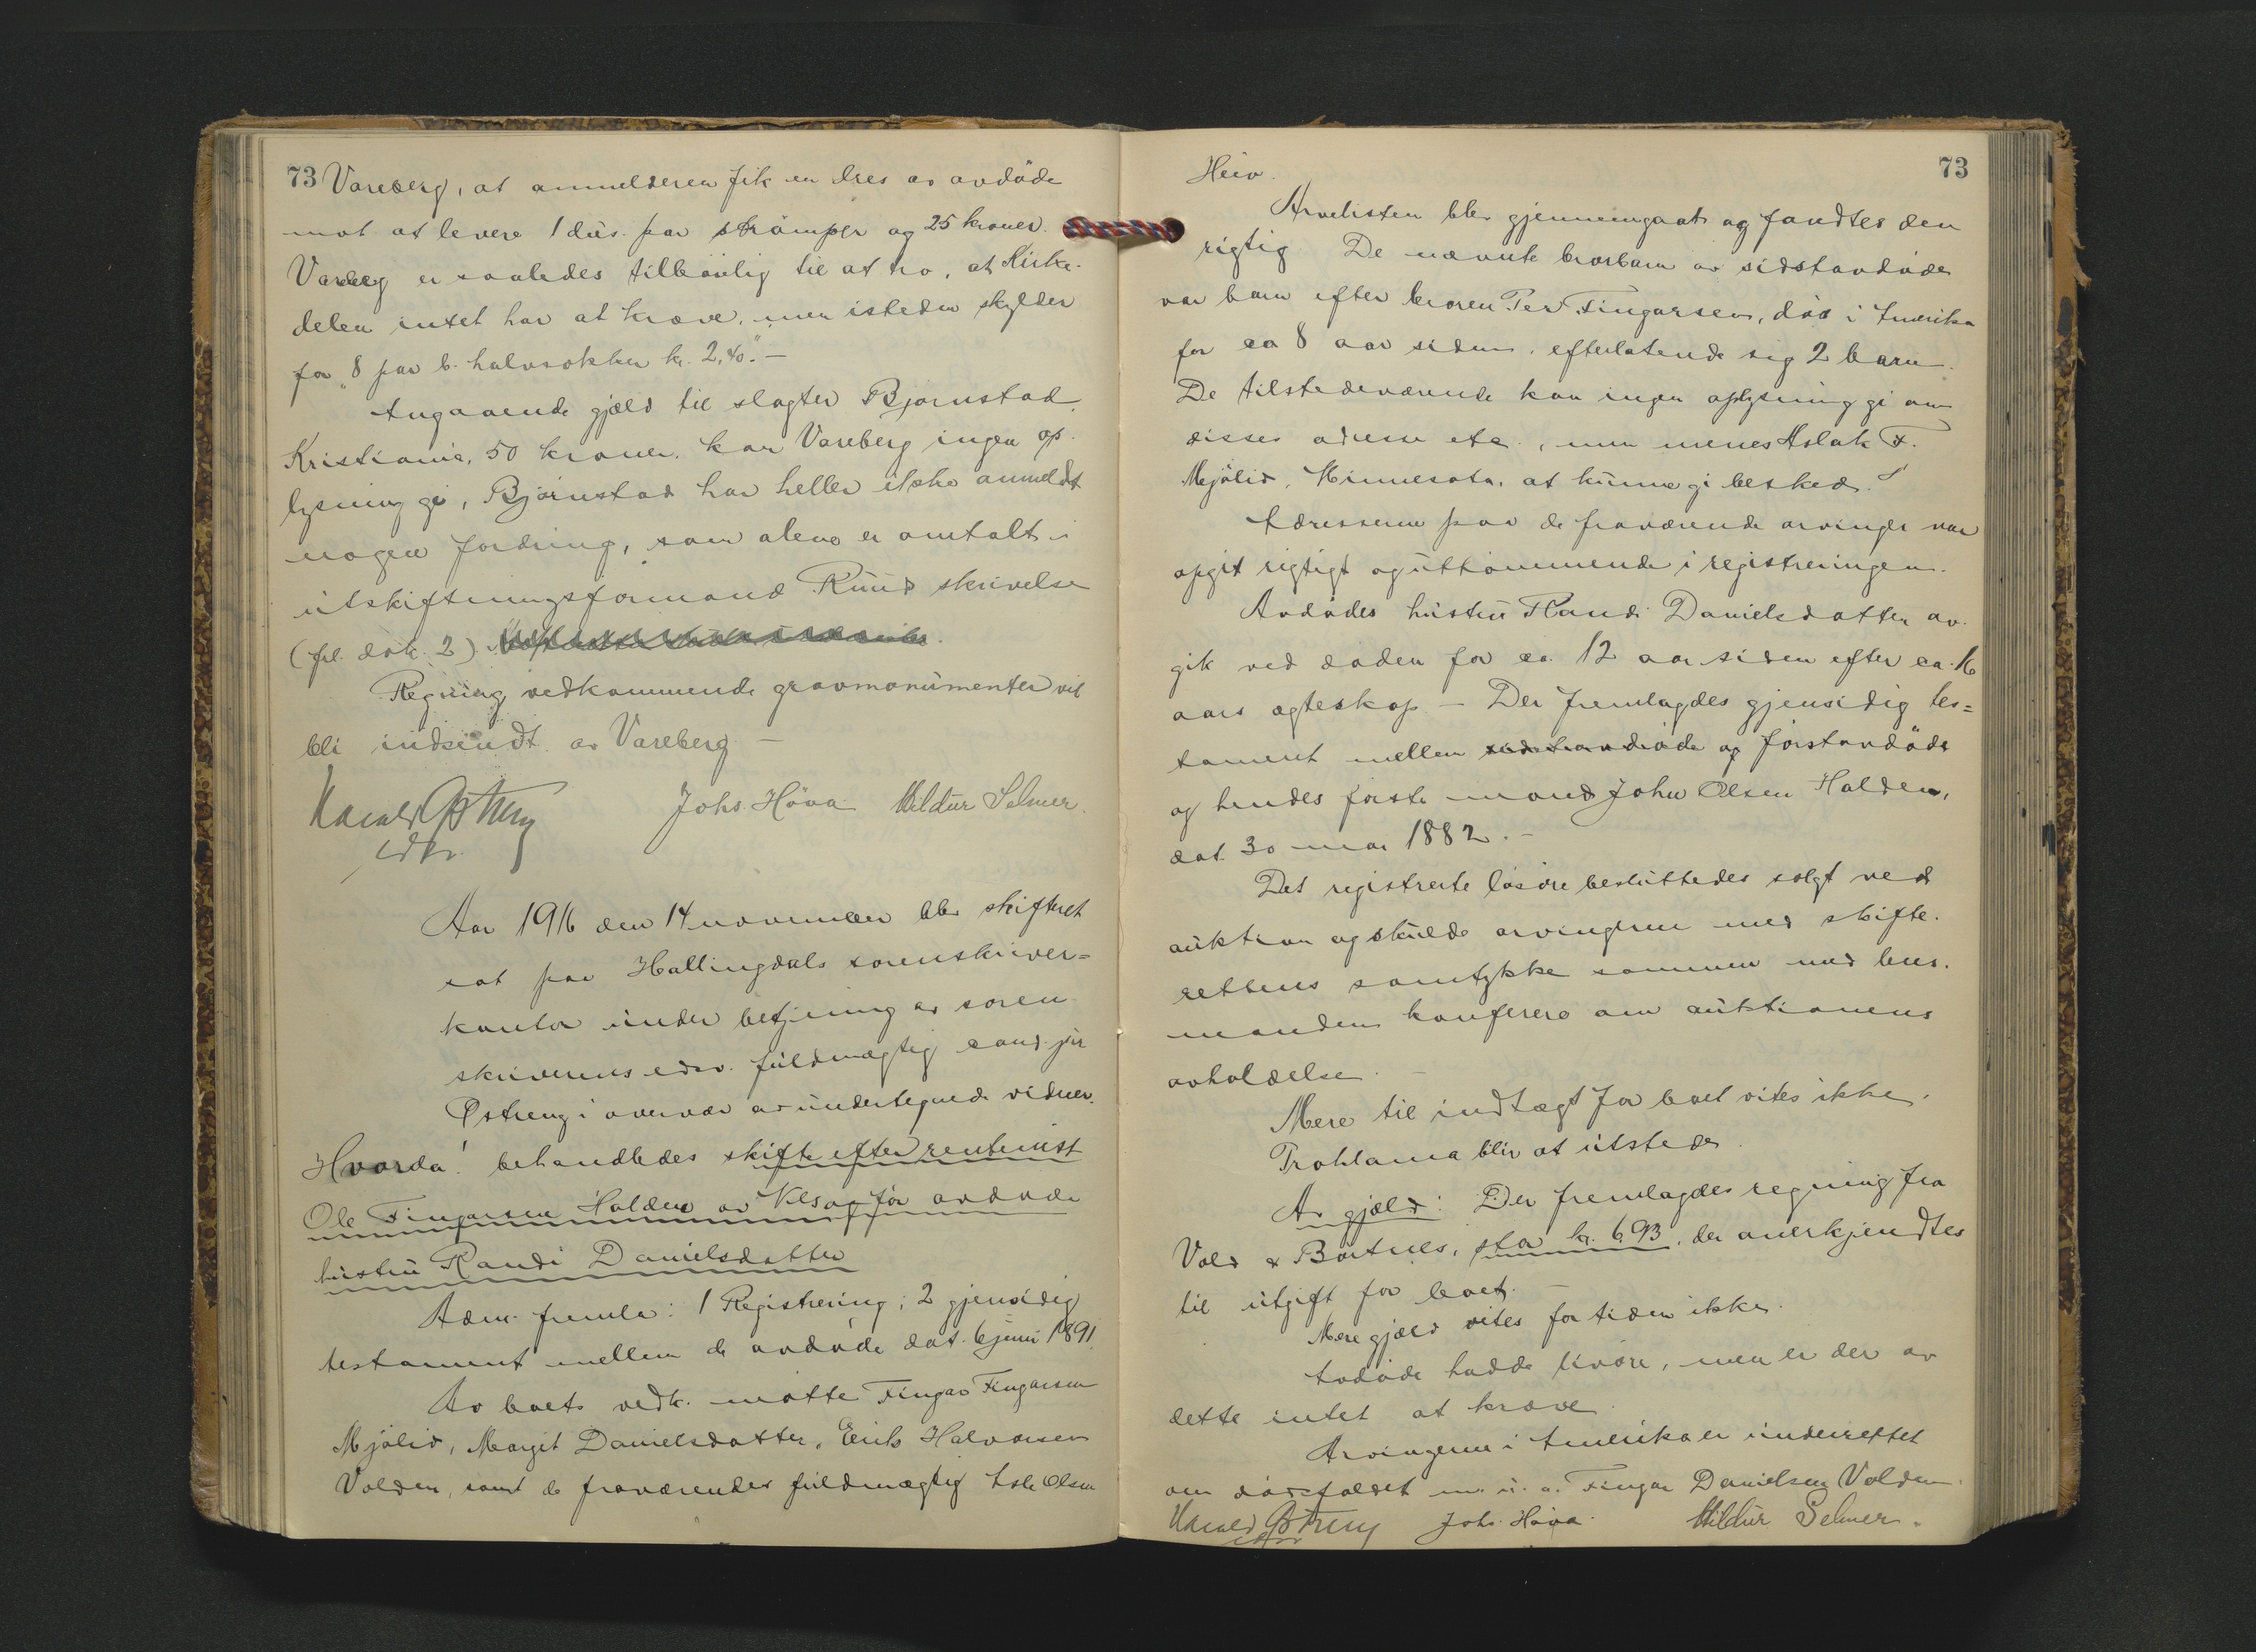 73 Vareberg, at anmelderen fik en dres av avdøde
mot at levere 1 dus. par strømper og 25 kroner.
Vareberg er saaledes tilbøielig til at tro, at Kirke-
delen intet har at kræve, men isteden skylder
for "8 par b. halvsokker kr. 2,40". —
Angaaende gjæld til slagter Bjørnstad,
Kristiania, 50 kroner, kan Vareberg ingen op-
lysning gi, Bjørnstad har heller ikke anmeldt
nogen fordring, som alene er omtalt i
utskiftningsformand Ruud skrivelse
(frl. dok. 2).
Regning vedkommende gravmonumenter vil
bli indsendt av Vareberg —
Harald Østreng Johs. Höva Hildur Selmer.
edsv.
Aar 1916 den 14 november blev skifteret
sat paa Hallingdals sorenskriver=
kontor under betjening av soren
skriverens edsv. fuldmægtig cand. jur
Østreng i overvær av undertegnede vidner.
Hvorda! behandledes skifte efter rentenist
Ole Fingarsen Halden av Nes og før avdøde
hustru Randi Danielsdatter
Adm. fremla: 1 Registrering; 2 gjensidig
testament mellem de avdøde dat. 6 juni 1891.
Av boets vedk. møtte Fingar Fingarsen
Mjølid, Margit Danielsdatter, Erik Halvorsen
Volden, samt de fraværendes fuldmægtig Asle Olsen
73
Heiv.
Arvelisten blev gjennemgaat og fandtes den
rigtig De nævnte brorbarn av sidstavdøde
var barn efter broren Per Fingarsen, død i Amerika
for ca 8 aar siden, efterlatende sig 2 barn.
De tilstedeværende kan ingen oplysning gi om
disses adresse etc., men menes Aslak F.
Mjølid, Minnesota, at kunne gi besked.
Adresserne paa de fraværende arvinger var
opgit rigtigt og utkommende i registreringen.
Avdødes hustru Randi Danielsdatter av-
gik ved døden for ca. 12 aar siden efter ca. 16
aars egteskap — Der fremlagdes gjensidig tes=
tament mellem sidstavdøde og førstavdøde
og hendes første mand John Olsen Halden,
dat. 30 mai 1882. —
Det registrerte løsøre besluttedes solgt ved
auktion og skulde arvingerne med skifte-
rettens samtykke sammen med lens-
manden konferere om auktionens
avholdelse. —
Mere til indtægt for boet vites ikke.
Proklama blir at utstede.
Av gjæld: Der fremlagdes regning fra
Vold & Børtnes, stor kr. 6,93, der anerkjendtes
til utgift for boet. —
Mere gjæld vites for tiden ikke.
Avdøde hadde livøre, men er der av
dette intet at kræve.
Arvingerne i Amerika er underrettet
om dødsfaldet m. u. a. Fingar Danielsen Volden.
Harald Østreng Johs. Höva. Hildur Selmer.
edsv